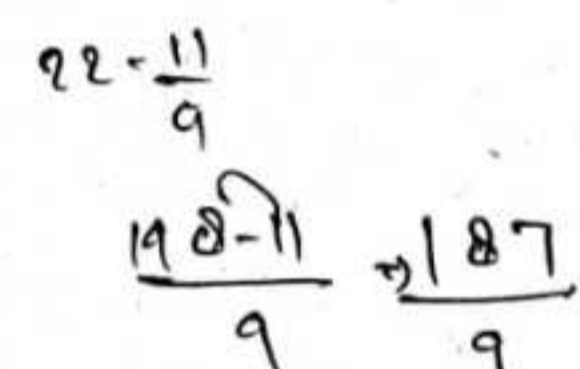 22 - 11/9
198-11/9 ⇒ 187/9